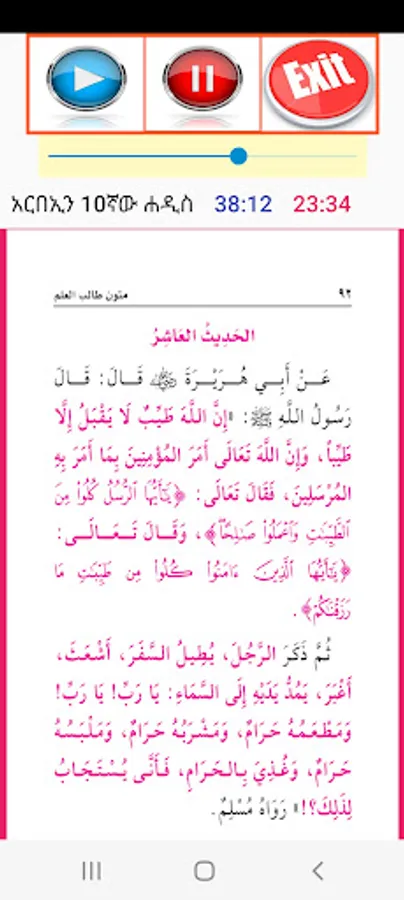 Exit
አርበኢን 10ኛው ሐዲስ 38:12 23:34
٩٢ متون طالب العلم
الحَدِيثُ العَاشِرُ
عَنْ أَبِي هُرَيْرَةَ ﵁ قَالَ: قَالَ
رَسُولُ اللَّهِ ﷺ: «إِنَّ اللَّهَ طَيِّبٌ لَا يَقْبَلُ إِلَّا
طَيِّباً، وَإِنَّ اللَّهَ تَعَالَى أَمَرَ المُؤْمِنِينَ بِمَا أَمَرَ بِهِ
المُرْسَلِينَ، فَقَالَ تَعَالَى: ﴿يَٰٓأَيُّهَا ٱلرُّسُلُ كُلُوا۟ مِنَ
ٱلطَّيِّبَٰتِ وَٱعْمَلُوا۟ صَٰلِحًا﴾، وَقَالَ تَعَالَى:
﴿يَٰٓأَيُّهَا ٱلَّذِينَ ءَامَنُوا۟ كُلُوا۟ مِن طَيِّبَٰتِ مَا
رَزَقْنَٰكُمْ﴾.
ثُمَّ ذَكَرَ الرَّجُلَ، يُطِيلُ السَّفَرَ، أَشْعَثَ،
أَغْبَرَ، يَمُدُّ يَدَيْهِ إِلَى السَّمَاءِ: يَا رَبِّ! يَا رَبِّ!
وَمَطْعَمُهُ حَرَامٌ، وَمَشْرَبُهُ حَرَامٌ، وَمَلْبَسُهُ
حَرَامٌ، وَغُذِيَ بِالحَرَامِ، فَأَنَّى يُسْتَجَابُ
لِذَلِكَ؟!» رَوَاهُ مُسْلِمٌ.